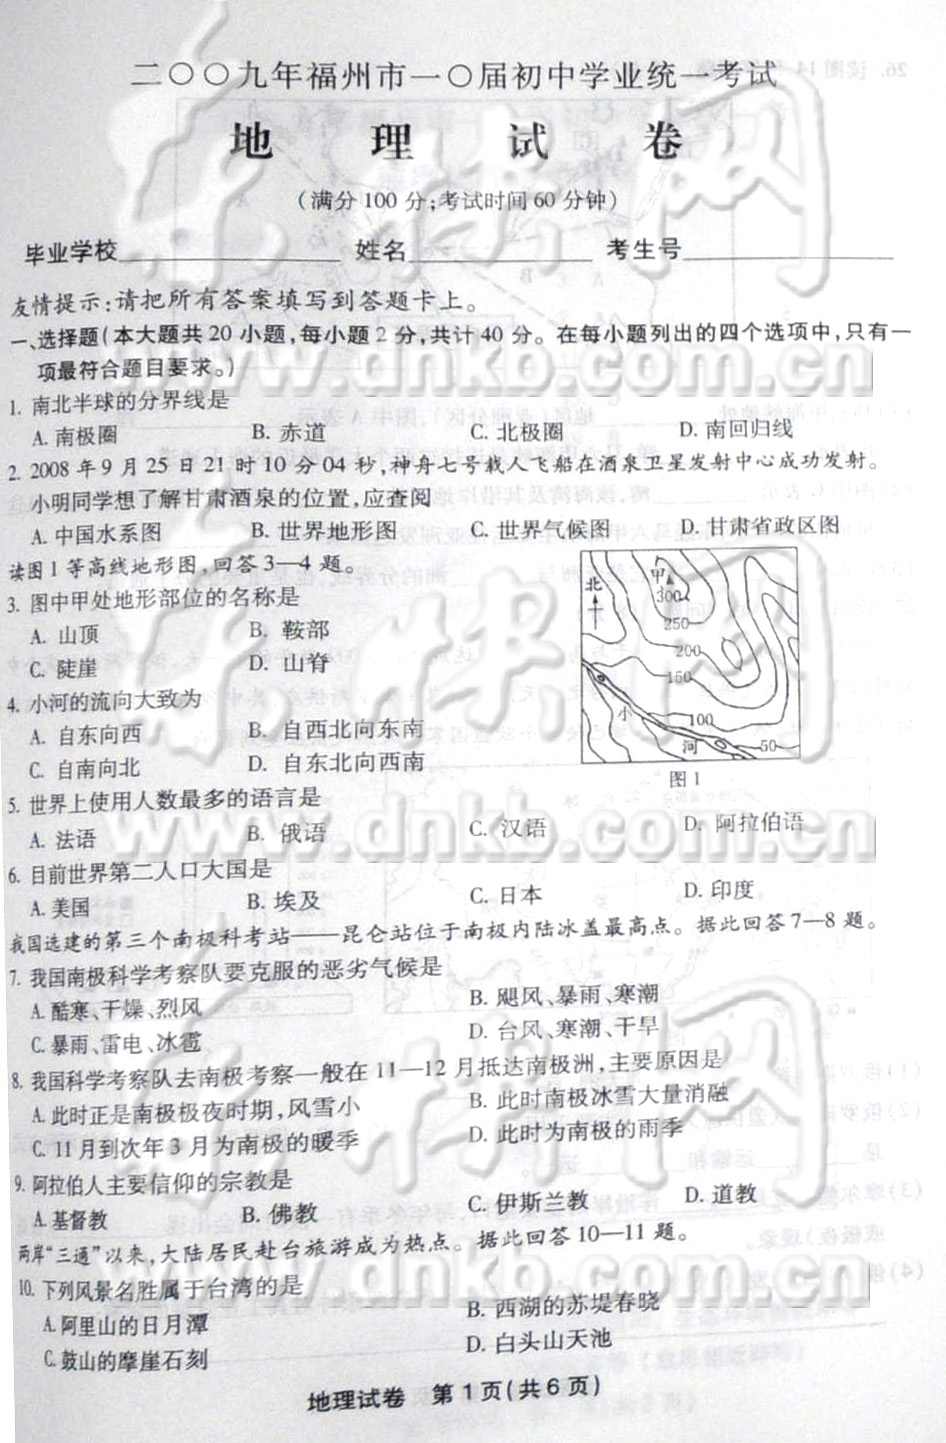 二○○九年福州市一○届初中学业统一考试
地 理 试 卷
(满分 100 分;考试时间 60 分钟)
毕业学校 姓名 考生号
友情提示:请把所有答案填写到答题卡上。
一、选择题(本大题共 20 小题,每小题 2 分,共计 40 分。在每小题列出的四个选项中,只有一
项最符合题目要求。)
1. 南北半球的分界线是
A. 南极圈 B. 赤道 C. 北极圈 D. 南回归线
2. 2008 年 9 月 25 日 21 时 10 分 04 秒,神舟七号载人飞船在酒泉卫星发射中心成功发射。
小明同学想了解甘肃酒泉的位置,应查阅
A. 中国水系图 B. 世界地形图 C. 世界气候图 D. 甘肃省政区图
读图 1 等高线地形图,回答 3—4 题。
3. 图中甲处地形部位的名称是
A. 山顶 B. 鞍部
C. 陡崖 D. 山脊
4. 小河的流向大致为
A. 自东向西 B. 自西北向东南
C. 自南向北 D. 自东北向西南
北
甲
300
250
200
150
100
50
小
河
图 1
5. 世界上使用人数最多的语言是
A. 法语 B. 俄语 C. 汉语 D. 阿拉伯语
6. 目前世界第二人口大国是
A. 美国 B. 埃及 C. 日本 D. 印度
我国选建的第三个南极科考站——昆仑站位于南极内陆冰盖最高点。据此回答 7—8 题。
7. 我国南极科学考察队要克服的恶劣气候是
A. 酷寒、干燥、烈风 B. 飓风、暴雨、寒潮
C. 暴雨、雷电、冰雹 D. 台风、寒潮、干旱
8. 我国科学考察队去南极考察一般在 11—12 月抵达南极洲,主要原因是
A. 此时正是南极极夜时期,风雪小 B. 此时南极冰雪大量消融
C. 11 月到次年 3 月为南极的暖季 D. 此时为南极的雨季
9. 阿拉伯人主要信仰的宗教是
A. 基督教 B. 佛教 C. 伊斯兰教 D. 道教
两岸“三通”以来,大陆居民赴台旅游成为热点。据此回答 10—11 题。
10. 下列风景名胜属于台湾的是
A. 阿里山的日月潭 B. 西湖的苏堤春晓
C. 鼓山的摩崖石刻 D. 白头山天池
地理试卷 第 1 页(共 6 页)
www.dnkb.com.cn
www.dnkb.com.cn
www.dnkb.com.cn